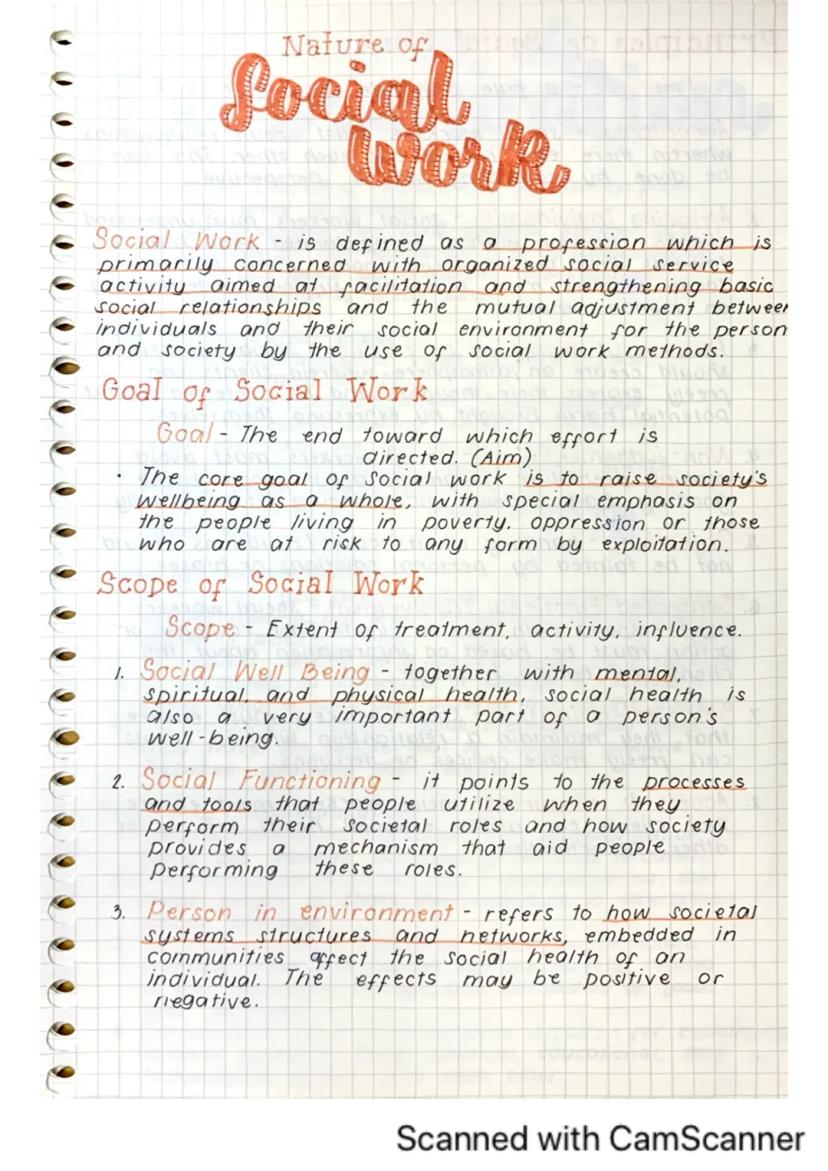 Nature of
Social
Work
Social Work - is defined as a profession which is
primarily concerned with organized social service
activity aimed at facilitation and strengthening basic
social relationships and the mutual adjustment between
individuals and their social environment for the person
and society by the use of social work methods.
Goal of Social Work
Goal - The end toward which effort is
directed. (Aim)
• The core goal of social work is to raise society's
wellbeing as a whole, with special emphasis on
the people living in poverty, oppression or those
who are at risk to any form by exploitation.
Scope of Social Work
Scope - Extent of treatment, activity, influence.
1. Social Well Being - together with mental,
spiritual, and physical health, social health is
also a very important part of a person's
well-being.
2. Social Functioning - it points to the processes
and tools that people utilize when they
perform their societal roles and how society
provides a mechanism that aid people
performing these roles.
3. Person in environment - refers to how societal
systems structures and networks, embedded in
communities affect the social health of an
individual. The effects may be positive or
negative.
Scanned with CamScanner